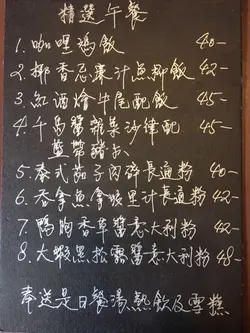 精選午餐
1. 咖哩鷄飯 40-
2. 椰香忌廉汁魚柳飯 42-
3. 紅酒燴牛尾配飯 45-
4. 千島醬雜菜沙律配 45-
藍帶豬扒
5. 泰式茄子肉碎長通粉 40-
6. 吞拿魚拿坡里汁長通粉 42-
7. 鴨胸香草醬意大利粉 42-
8. 大蝦黑松露醬意大利粉 48-
奉送是日餐湯,熱飲及雪糕